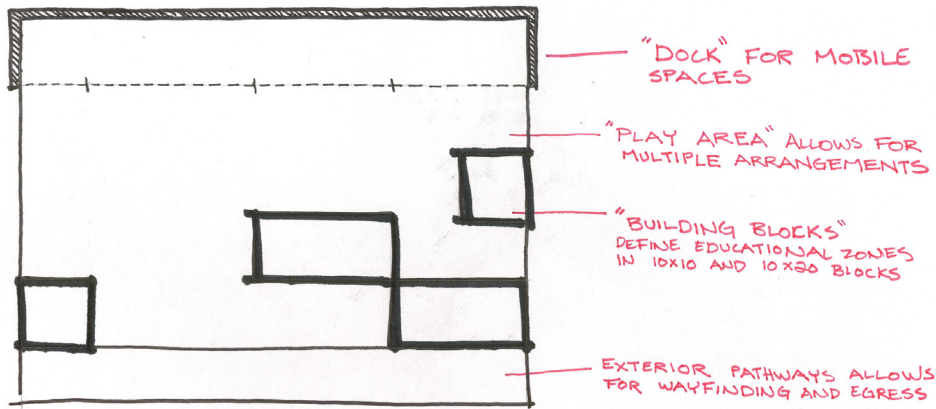 "DOCK" FOR MOBILE
SPACES
"PLAY AREA" ALLOWS FOR
MULTIPLE ARRANGEMENTS
"BUILDING BLOCKS"
DEFINE EDUCATIONAL ZONES
IN 10X10 AND 10X20 BLOCKS
EXTERIOR PATHWAYS ALLOWS
FOR WAYFINDING AND EGRESS